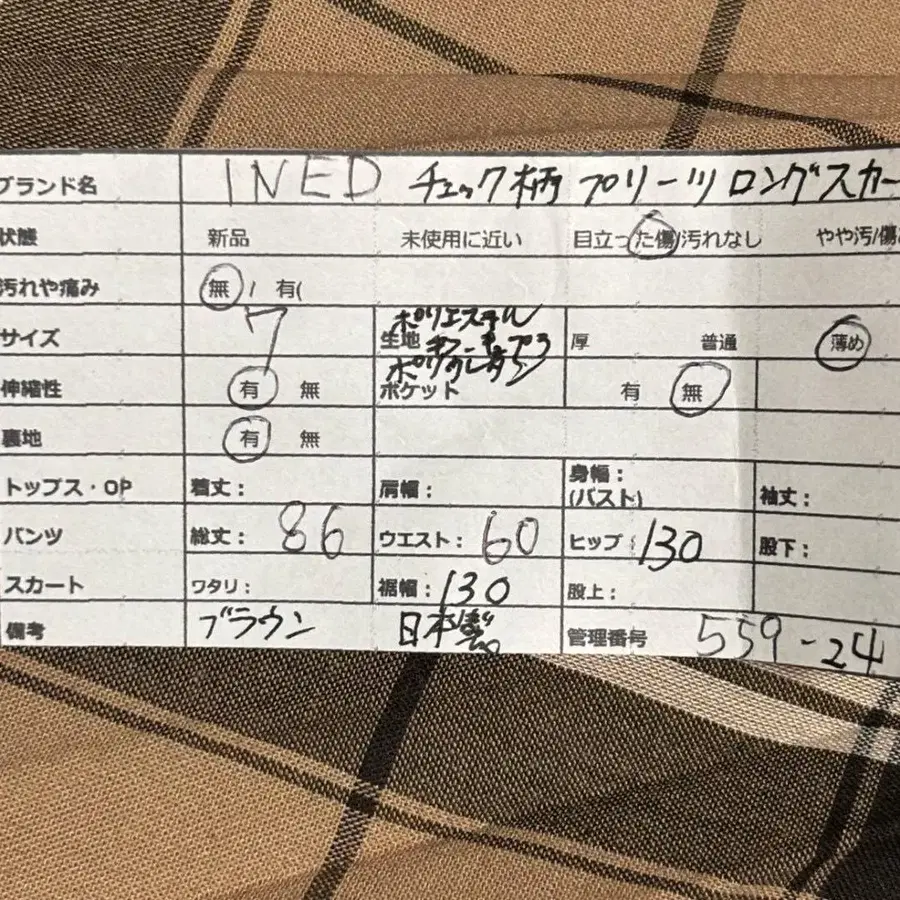 ブランド名 INED チェック柄 プリーツ ロングスカー
状態 新品 未使用に近い 目立った傷/汚れなし やや汚/傷
汚れや痛み 無 / 有(
サイズ 7 ポリエステル 生地 キュプラ ポリウレタン 厚 普通 薄め
伸縮性 有 無 ポケット 有 無
裏地 有 無
トップス・OP 着丈: 肩幅: 身幅: (バスト) 袖丈:
パンツ 総丈: 86 ウエスト: 60 ヒップ: 130 股下:
スカート ワタリ: 裾幅: 130 股上:
備考 ブラウン 日本製 管理番号 559-24